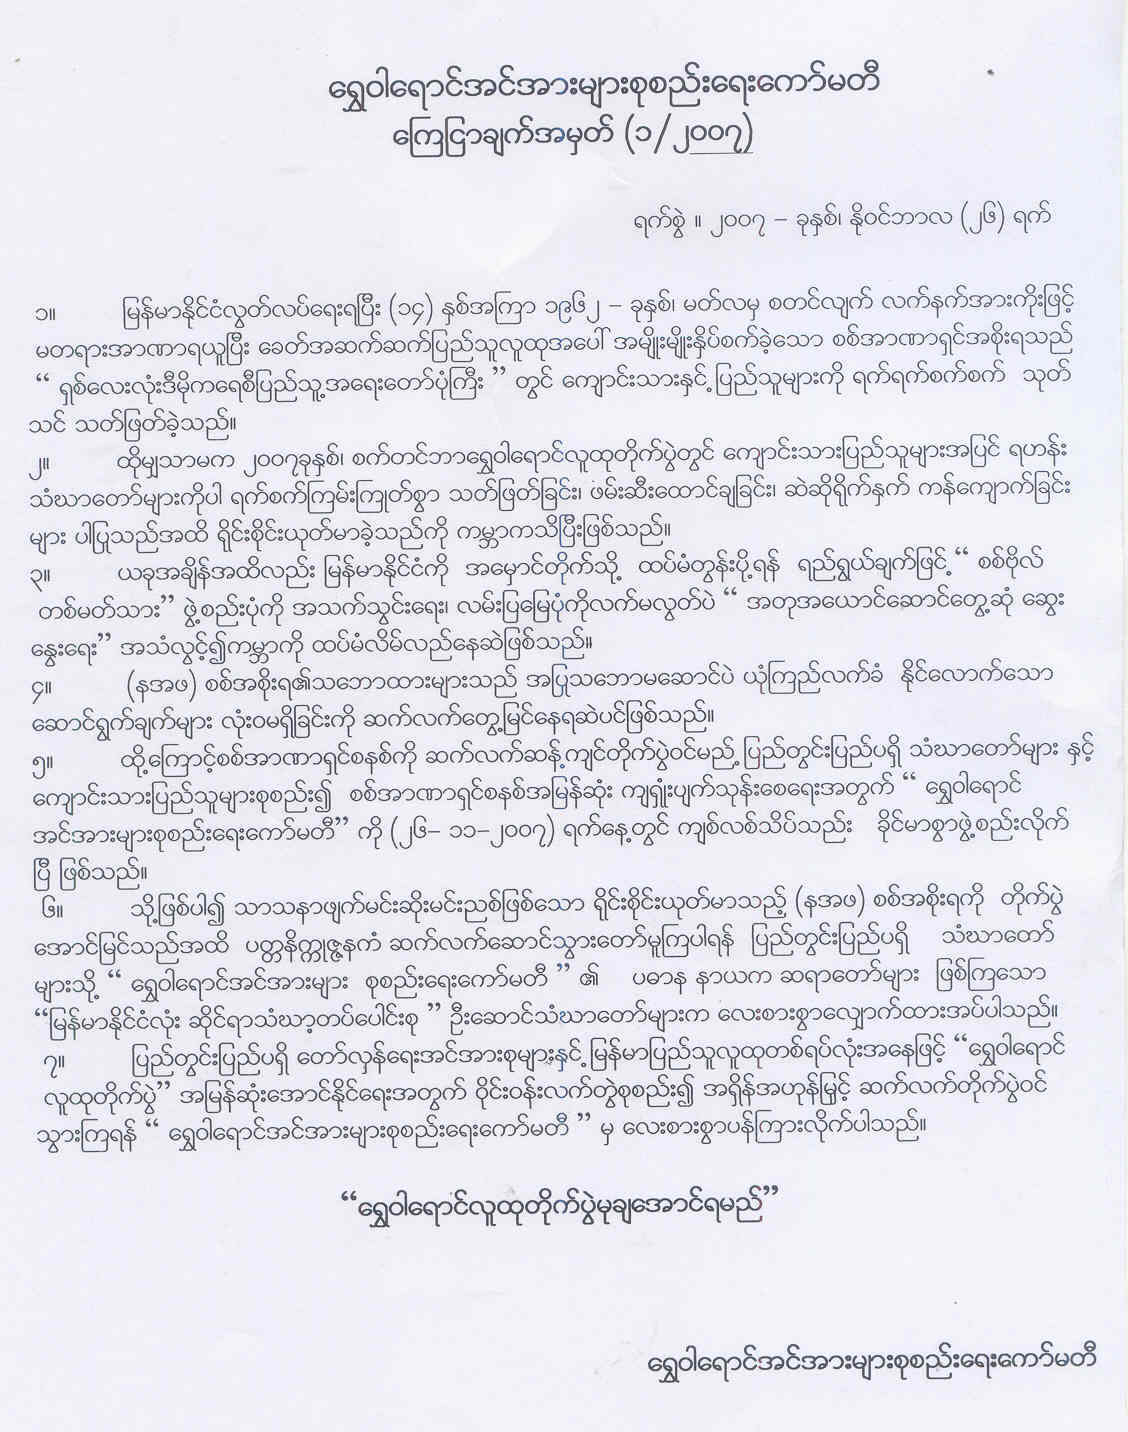 ရွှေဝါရောင်အင်အားများစုစည်းရေးကော်မတီ
ကြေငြာချက်အမှတ် (၁/၂၀၀၇)
ရက်စွဲ ။ ၂၀၀၇ – ခုနှစ်၊ နိုဝင်ဘာလ (၂၆) ရက်
၁။ မြန်မာနိုင်ငံလွတ်လပ်ရေးရပြီး (၁၄) နှစ်အကြာ ၁၉၆၂ – ခုနှစ်၊ မတ်လမှ စတင်လျက် လက်နက်အားကိုးဖြင့်
မတရားအာဏာရယူပြီး ခေတ်အဆက်ဆက်ပြည်သူလူထုအပေါ် အမျိုးမျိုးနှိပ်စက်ခဲ့သော စစ်အာဏာရှင်အစိုးရသည်
“ ရှစ်လေးလုံးဒီမိုကရေစီပြည်သူ့အရေးတော်ပုံကြီး ” တွင် ကျောင်းသားနှင့် ပြည်သူများကို ရက်ရက်စက်စက် သုတ်
သင် သတ်ဖြတ်ခဲ့သည်။
၂။ ထိုမျှသာမက ၂၀၀၇ခုနှစ်၊ စက်တင်ဘာရွှေဝါရောင်လူထုတိုက်ပွဲတွင် ကျောင်းသားပြည်သူများအပြင် ရဟန်း
သံဃာတော်များကိုပါ ရက်စက်ကြမ်းကြုတ်စွာ သတ်ဖြတ်ခြင်း၊ ဖမ်းဆီးထောင်ချခြင်း၊ ဆဲဆိုရိုက်နှက် ကန်ကျောက်ခြင်း
များ ပါပြုသည်အထိ ရိုင်းစိုင်းယုတ်မာခဲ့သည်ကို ကမ္ဘာကသိပြီးဖြစ်သည်။
၃။ ယခုအချိန်အထိလည်း မြန်မာနိုင်ငံကို အမှောင်တိုက်သို့ ထပ်မံတွန်းပို့ရန် ရည်ရွယ်ချက်ဖြင့် “ စစ်ဗိုလ်
တစ်မတ်သား” ဖွဲ့စည်းပုံကို အသက်သွင်းရေး၊ လမ်းပြမြေပုံကိုလက်မလွတ်ပဲ “ အတုအယောင်ဆောင်တွေ့ဆုံ ဆွေး
နွေးရေး” အသံလွှင့်၍ကမ္ဘာကို ထပ်မံလိမ်လည်နေဆဲဖြစ်သည်။
၄။ (နအဖ) စစ်အစိုးရ၏သဘောထားများသည် အပြုသဘောမဆောင်ပဲ ယုံကြည်လက်ခံ နိုင်လောက်သော
ဆောင်ရွက်ချက်များ လုံးဝမရှိခြင်းကို ဆက်လက်တွေ့မြင်နေရဆဲပင်ဖြစ်သည်။
၅။ ထို့ကြောင့်စစ်အာဏာရှင်စနစ်ကို ဆက်လက်ဆန့်ကျင်တိုက်ပွဲဝင်မည့် ပြည်တွင်းပြည်ပရှိ သံဃာတော်များ နှင့်
ကျောင်းသားပြည်သူများစုစည်း၍ စစ်အာဏာရှင်စနစ်အမြန်ဆုံး ကျရှုံးပျက်သုန်းစေရေးအတွက် “ ရွှေဝါရောင်
အင်အားများစုစည်းရေးကော်မတီ” ကို (၂၆– ၁၁–၂၀၀၇) ရက်နေ့တွင် ကျစ်လစ်သိပ်သည်း ခိုင်မာစွာဖွဲ့စည်းလိုက်
ပြီ ဖြစ်သည်။
၆။ သို့ဖြစ်ပါ၍ သာသနာဖျက်မင်းဆိုးမင်းညစ်ဖြစ်သော ရိုင်းစိုင်းယုတ်မာသည့် (နအဖ) စစ်အစိုးရကို တိုက်ပွဲ
အောင်မြင်သည်အထိ ပတ္တနိက္ကုဇ္ဇနကံ ဆက်လက်ဆောင်သွားတော်မူကြပါရန် ပြည်တွင်းပြည်ပရှိ သံဃာတော်
များသို့ “ ရွှေဝါရောင်အင်အားများ စုစည်းရေးကော်မတီ ” ၏ ပဓာန နာယက ဆရာတော်များ ဖြစ်ကြသော
“မြန်မာနိုင်ငံလုံး ဆိုင်ရာသံဃာ့တပ်ပေါင်းစု ” ဦးဆောင်သံဃာတော်များက လေးစားစွာလျှောက်ထားအပ်ပါသည်။
၇။ ပြည်တွင်းပြည်ပရှိ တော်လှန်ရေးအင်အားစုများနှင့် မြန်မာပြည်သူလူထုတစ်ရပ်လုံးအနေဖြင့် “ရွှေဝါရောင်
လူထုတိုက်ပွဲ” အမြန်ဆုံးအောင်နိုင်ရေးအတွက် ဝိုင်းဝန်းလက်တွဲစုစည်း၍ အရှိန်အဟုန်မြှင့် ဆက်လက်တိုက်ပွဲဝင်
သွားကြရန် “ ရွှေဝါရောင်အင်အားများစုစည်းရေးကော်မတီ ” မှ လေးစားစွာပန်ကြားလိုက်ပါသည်။
“ရွှေဝါရောင်လူထုတိုက်ပွဲမုချအောင်ရမည်”
ရွှေဝါရောင်အင်အားများစုစည်းရေးကော်မတီ